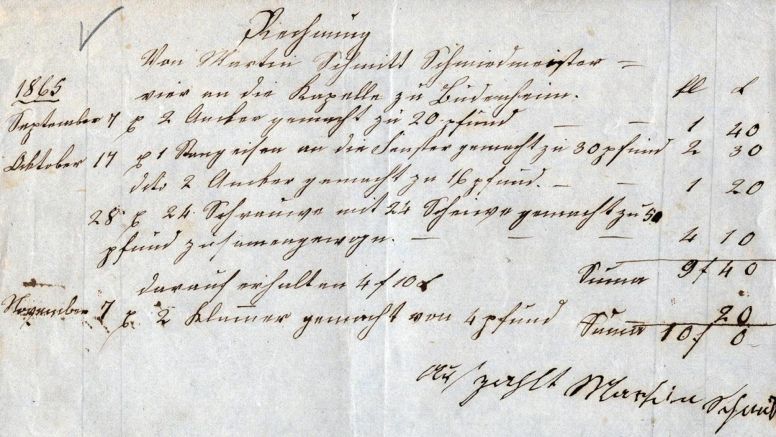 Rechnung
Von Martin Schmitt Schmiedmeister
1865 vier an die Kapelle zu Budenheim. fl x
September 7 2 Ancker gemacht zu 20 pfund — — 1 40
Oktober 17 1 Stangeisen an die Fenster gemacht zu 30 pfund 2 30
dito 2 Ancker gemacht zu 16 pfund. — — 1 20
28 24 Schrauwe mit 24 Scheiwe gemacht zu 50
pfund zusamengewogn. — — — 4 10
Suma 9 f 40
darauf erhalten 4 f 10 x
November 7 2 Klamer gemacht von 4 pfund 20
Suma 10 f 0
zahlt Martin